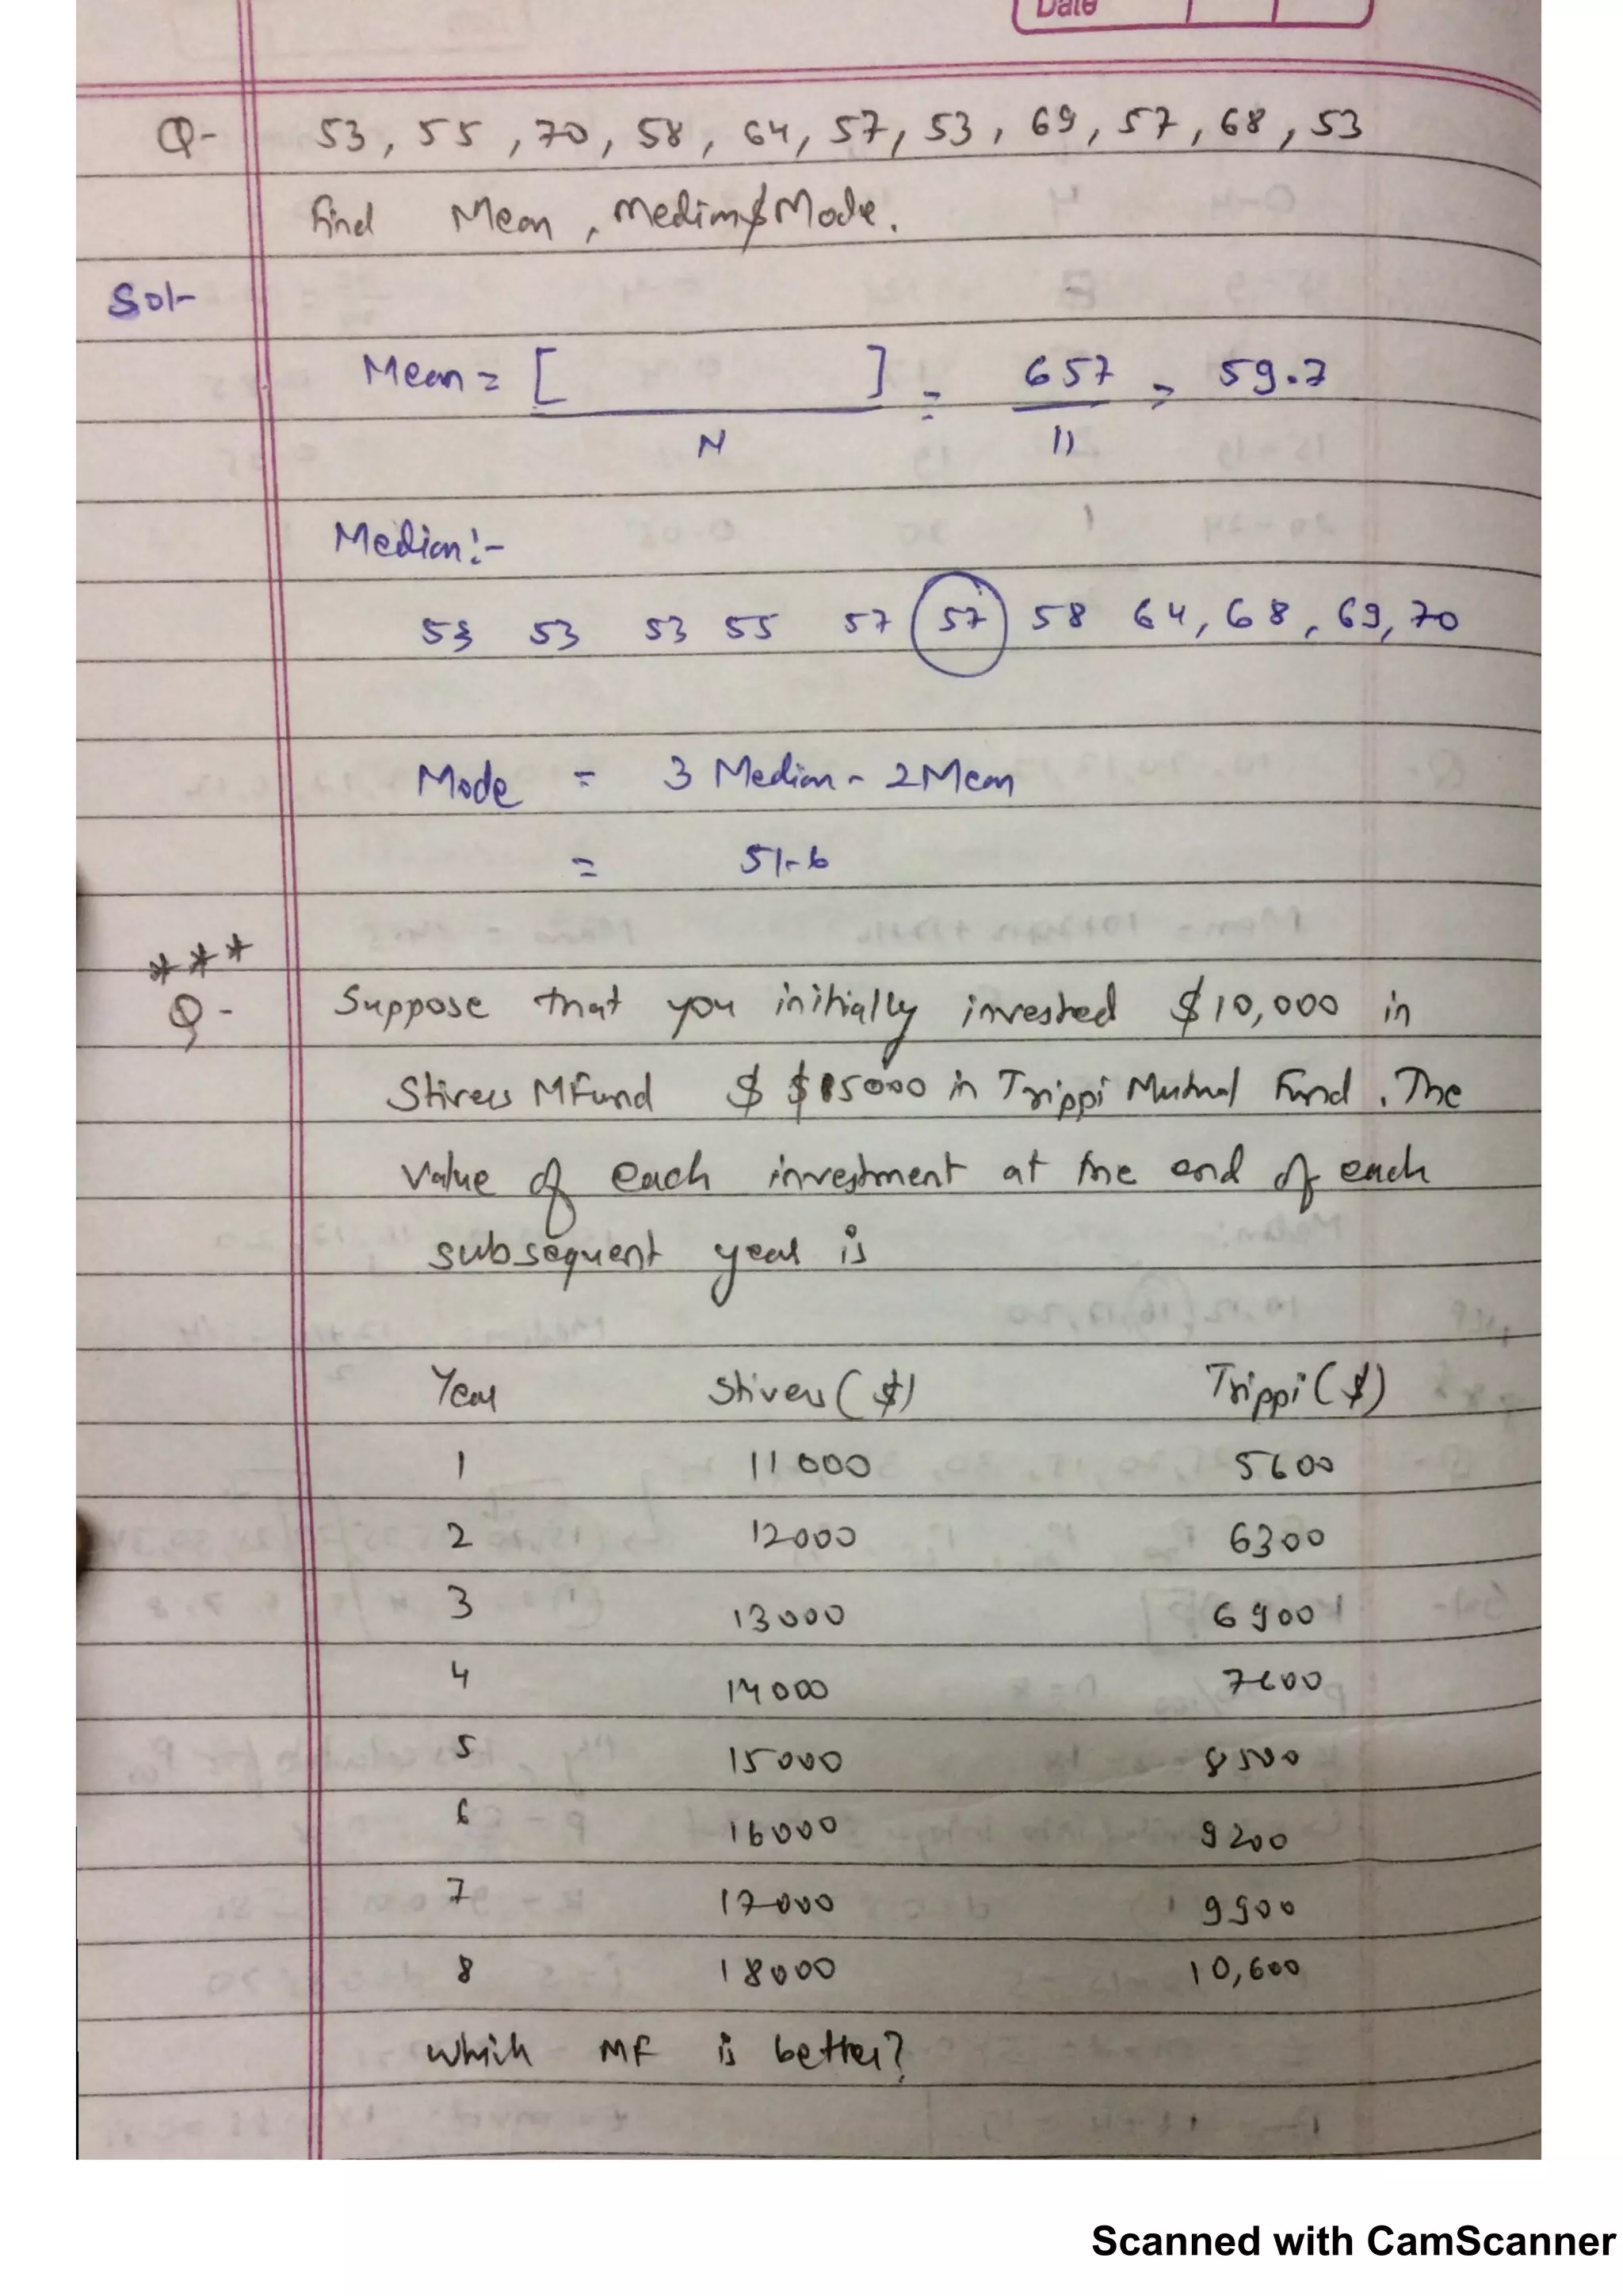 Date
Q- 53, 55, 70, 58, 64, 57, 53, 69, 57, 68, 53
find Mean, Median $ Mode.
Sol-
Mean = [ ] / N = 657 / 11 = 59.7
Median:-
53 53 53 55 57 57 58 64, 68, 69, 70
Mode = 3 Median - 2 Mean
= 51.6
***
Q- Suppose that you initially invested $10,000 in
Stivers MFund $ $5000 in Trippi Mutual Fund. The
value of each investment at the end of each
subsequent year is
Year Stivers ($) Trippi ($)
1 11000 5600
2 12000 6300
3 13000 6900
4 14000 7600
5 15000 8500
6 16000 9200
7 17000 9900
8 18000 10,600
which MF is better?
Scanned with CamScanner